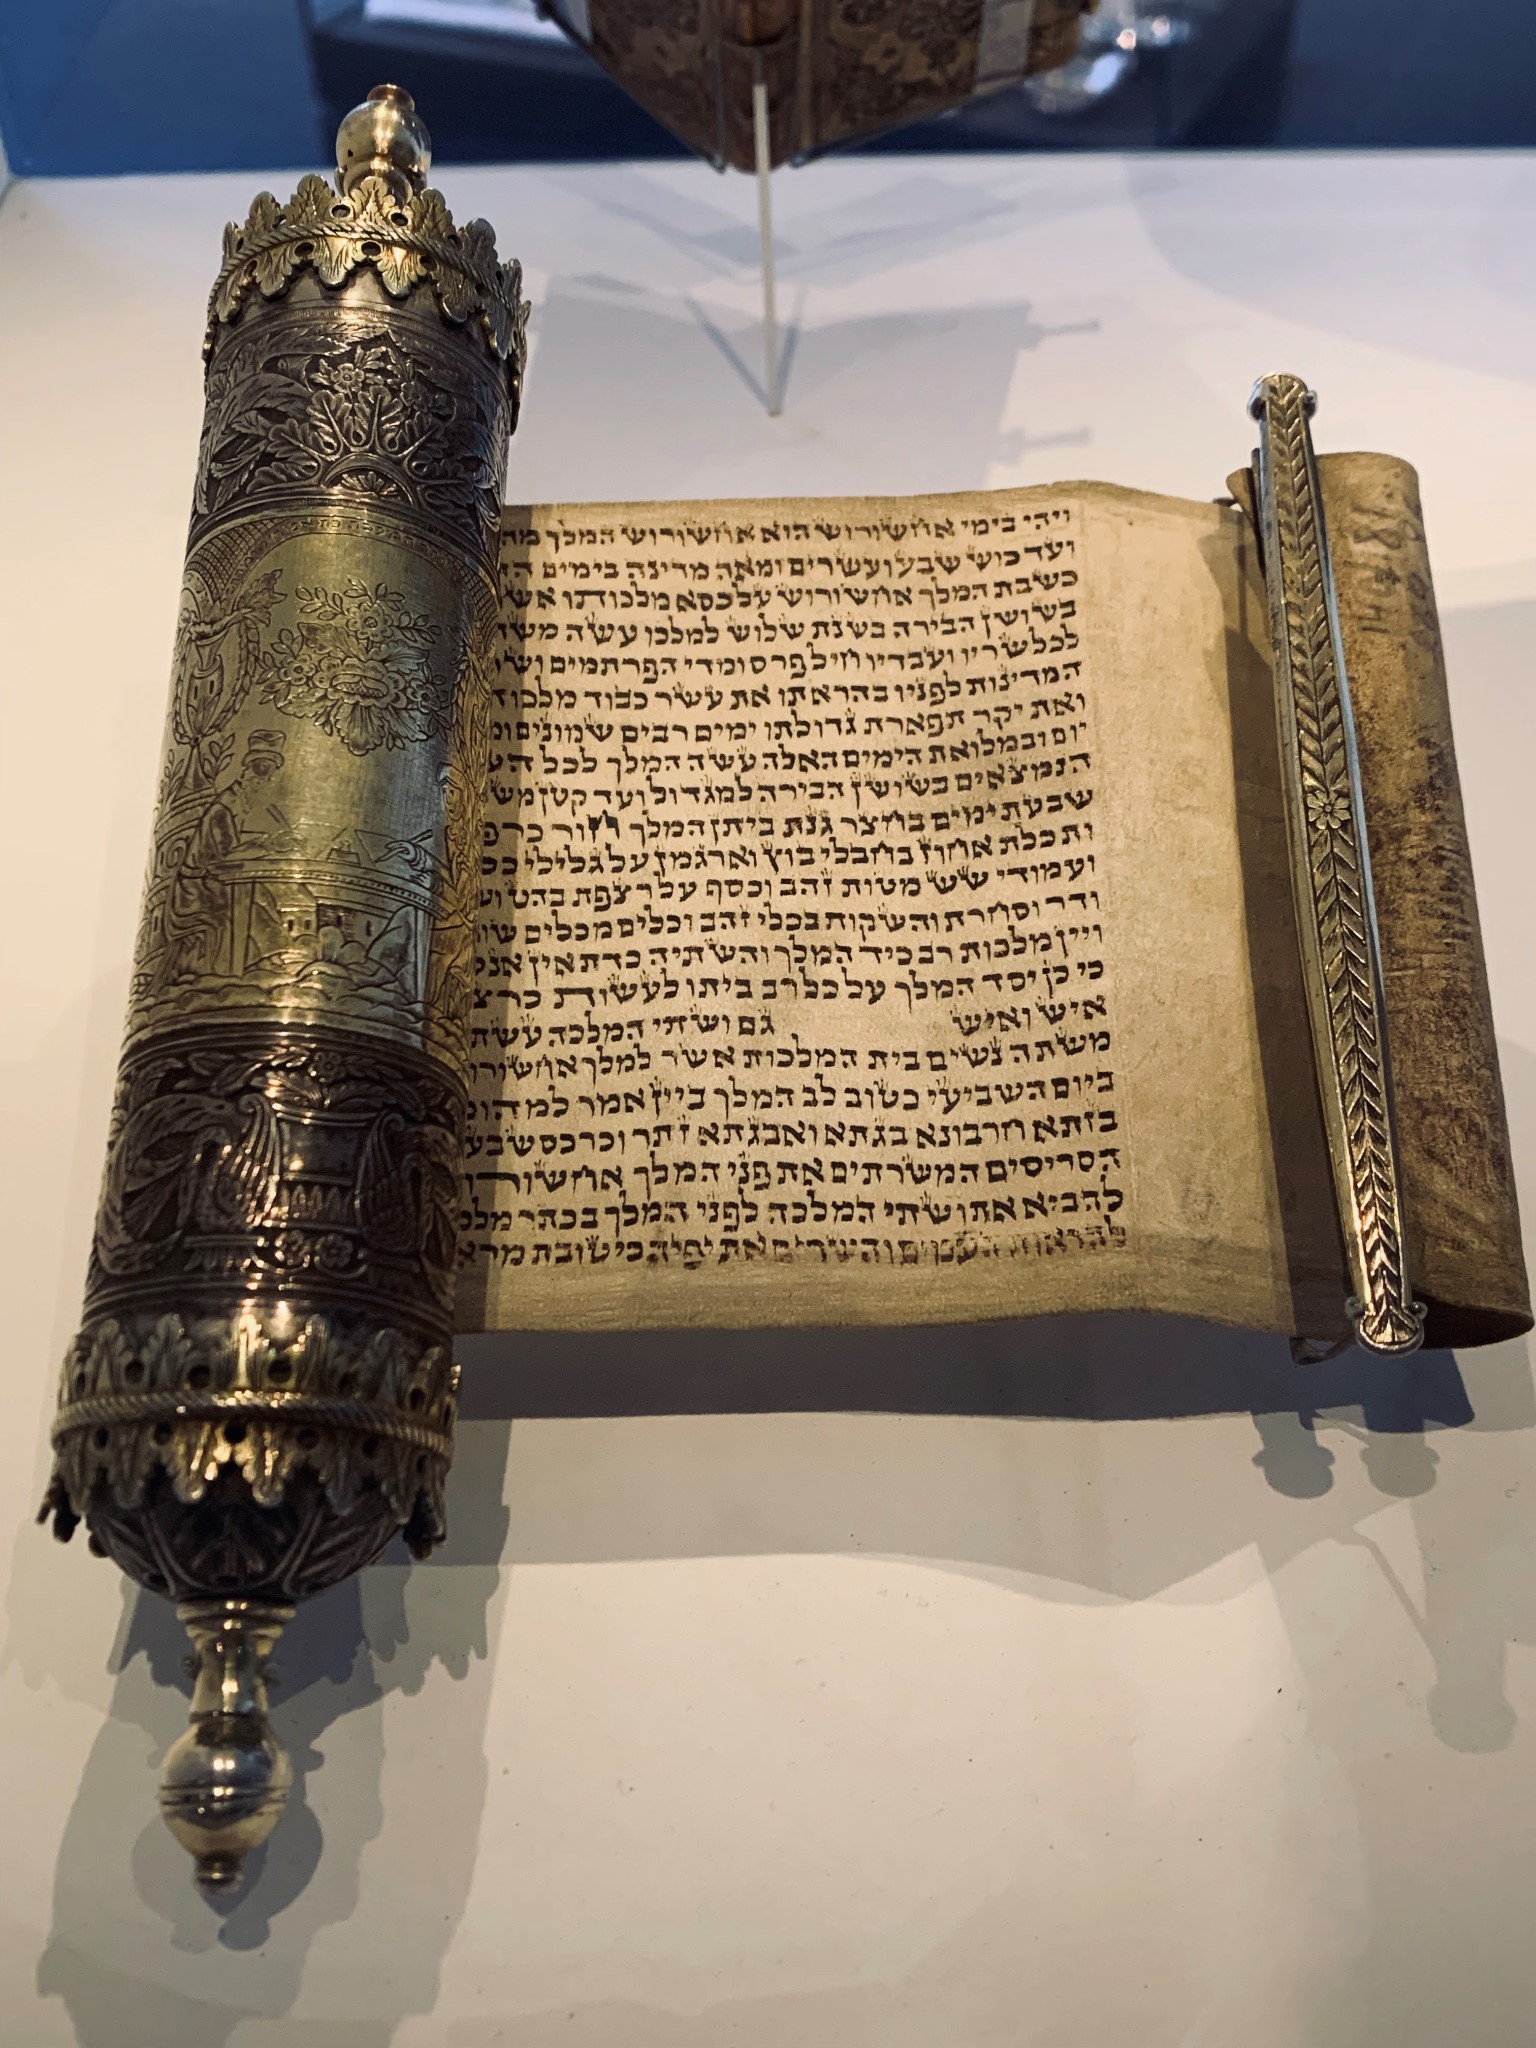 ויהי בימי אחשורוש הוא אחשורוש המלך מה
ועד כוש שבע ועשרים ומאה מדינה בימים הה
כשבת המלך אחשורוש על כסא מלכותו אשר
בשושן הבירה בשנת שלוש למלכו עשה משת
לכל שריו ועבדיו חיל פרס ומדי הפרתמים ושר
המדינות לפניו בהראתו את עשר כבוד מלכות
ואת יקר תפארת גדולתו ימים רבים שמונים ומ
יום ובמלואת הימים האלה עשה המלך לכל הע
הנמצאים בשושן הבירה למגדול ועד קטן מש
שבעת ימים בחצר גנת ביתן המלך חור כרפ
ותכלת אחוז בחבלי בוץ וארגמן על גלילי כס
ועמודי שש מטות זהב וכסף על רצפת בהט וש
ודר וסחרת והשקות בכלי זהב וכלים מכלים שונ
ויין מלכות רב כיד המלך והשתיה כדת אין אנס
כי כן יסד המלך על כל רב ביתו לעשות כרצ
איש ואיש גם ושתי המלכה עשת
משתה נשים בית המלכות אשר למלך אחשורו
ביום השביעי כטוב לב המלך ביין אמר למהומ
בזתא חרבונא בגתא ואבגתא זתר וכרכס שבע
הסריסים המשרתים את פני המלך אחשורו
להביא את ושתי המלכה לפני המלך בכתר מלכ
להראות העמים והשרים את יפיה כי טובת מרא